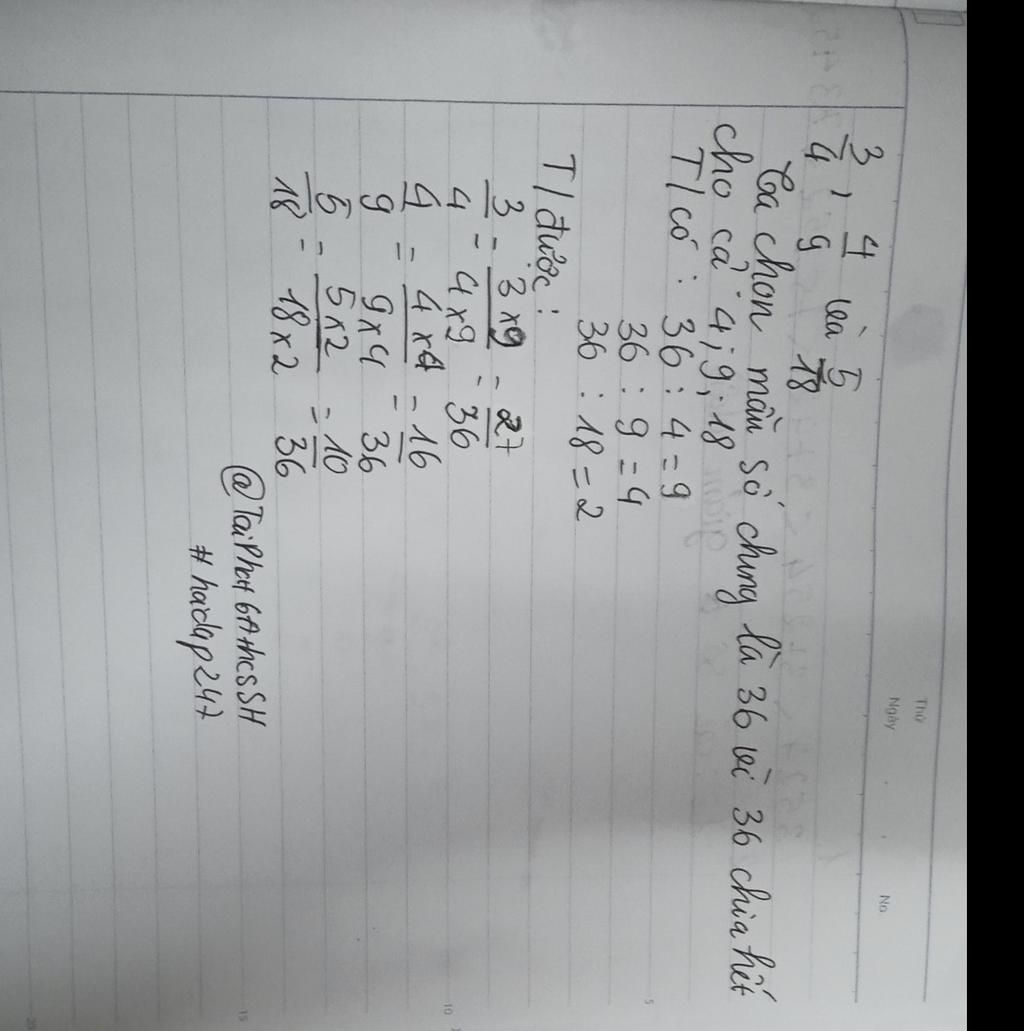 Thứ
Ngày . . No
3/4 , 4/9 và 5/18
Ta chọn mẫu số chung là 36 vì 36 chia hết
cho cả 4; 9; 18
T/có : 36 : 4 = 9
36 : 9 = 4
36 : 18 = 2
T/được :
3/4 = 3x9/4x9 = 27/36
4/9 = 4x4/9x4 = 16/36
5/18 = 5x2/18x2 = 10/36
@TaiPhat6AthcsSH
#hoidap247
5
10
15
20